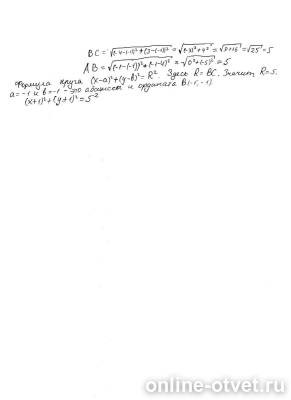 BC = √(-4-(-1))²+(3-(-1))² = √(-3)²+4² = √9+16 = √25 = 5
AB = √(-1-(-1))²+(-1-4)² = √0²+(-5)² = 5
Формула круга (x-a)²+(y-b)²=R² Здесь R=BC. Значит R=5.
a=-1 и b=-1 - это абсцисса и ордината B(-1;-1)
(x+1)²+(y+1)²=5²
online-otvet.ru